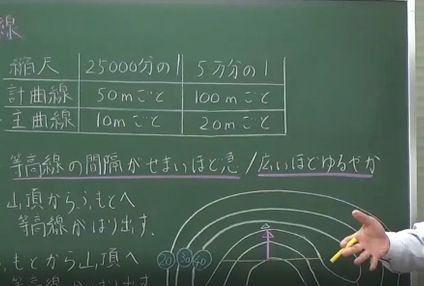 線
縮尺 25000分の1 5万分の1
計曲線 50mごと 100mごと
主曲線 10mごと 20mごと
等高線の間隔がせまいほど急/広いほどゆるやか
山頂から、ふもとへ
等高線がはり出す。
ふもとから山頂へ
等高線が
20 30 40